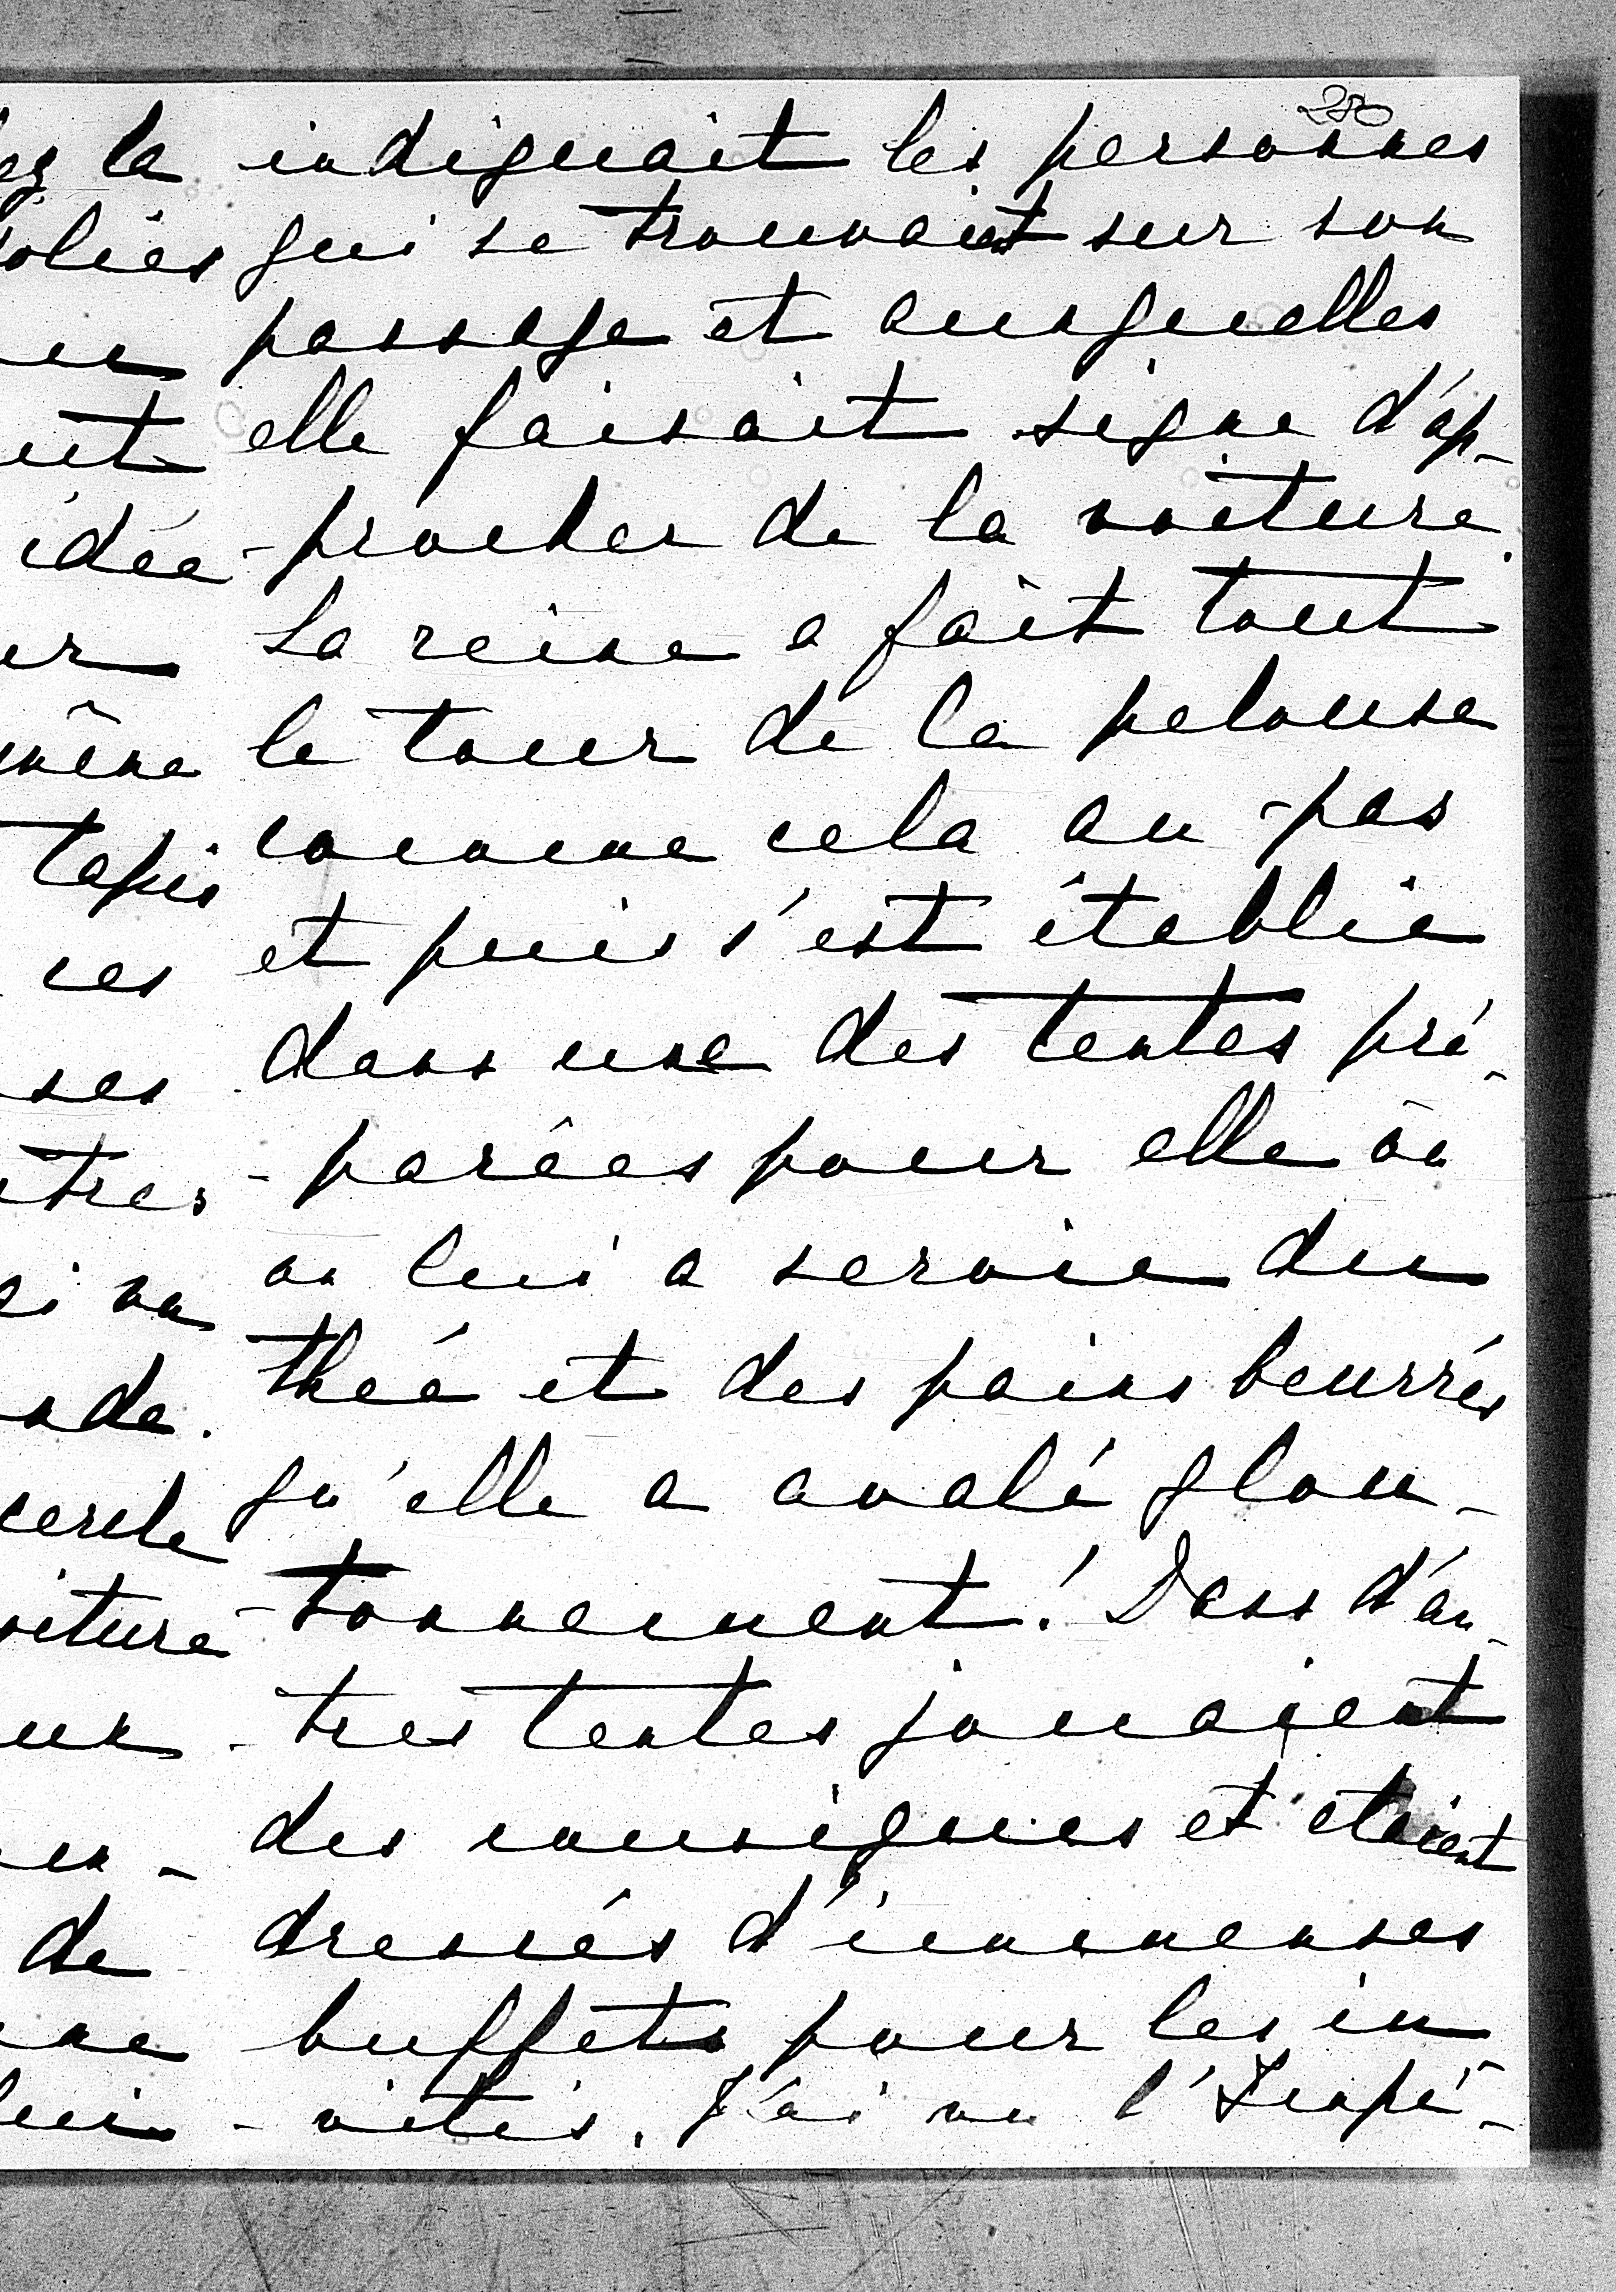 280
indiquait les personnes
qui se trouvaient sur son
passage et auxquelles
elle faisait signe d'ap-
-procher de la voiture.
La reine a fait tout
le tour de la pelouse
comme cela au pas
et puis s'est établie
dans une des tentes pré-
-parées pour elle où
on lui a servie du
thée et des pains beurrés
qu'elle a avalé glou-
-tonnement! Dans d'au-
-tres tentes jouaient
des musiques et étaient
dressés d'immenses
buffets pour les in-
-vités. J'ai vu l'Impé-
ez la
olies
ut
idée
même
tapis
ces
ses
tres
ai vu
nde.
cercle
oiture
de